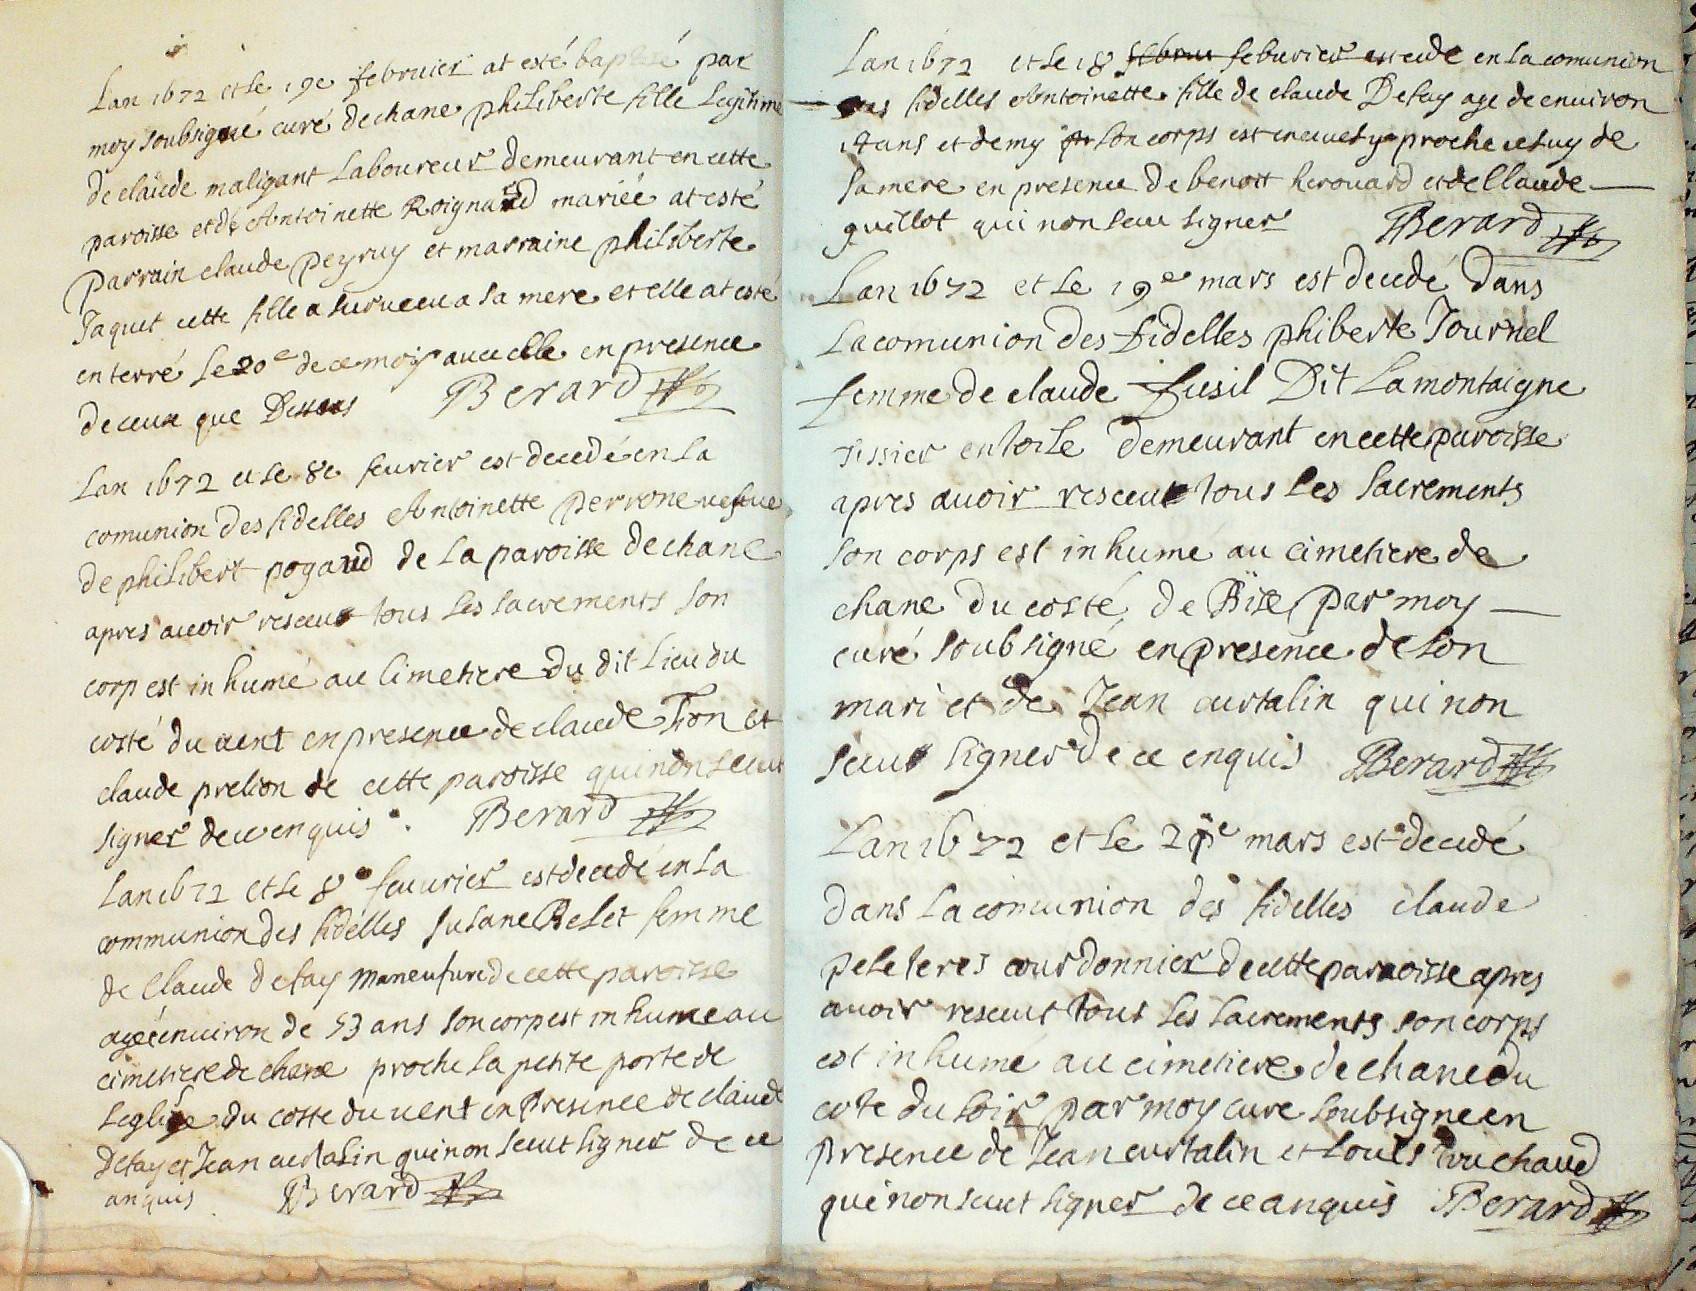 Lan 1672 et le 19e februier at esté baptisé par
moy soubsigné curé de chane philiberte fille legitime
de claude maligant Laboureur demeurant en cette
paroisse et de Antoinette Roignard mariée at esté
parrain claude peyruy et marraine philiberte
Jaquet cette fille a survecu a sa mere et elle at esté
enterré le 20e de ce moy avec elle en presence
de ceux que Dessus Berard
Lan 1672 et le 8e feurier est decedé en la
comunion des fidelles Antoinette perrone vefue
de philibert pogand de la paroisse de chane
apres auoir resceut tous les sacrements son
corp est in humé au Cimetiere du dit Lieu du
costé du uent en presence de claude Fion et
claude prelion de cette paroisse qui non sceut
signer de ce enquis. Berard
Lan 1672 et le 8e feuurier est decedé en la
communion des fidelles susane Belet femme
de Claude defay maneufure de cette paroisse
agée enuiron de 53 ans son corp est in hume au
cimetiere de chane proche la petite porte de
leglise du coste du uent en presence de claude
defay et Jean curtalin qui non sceut signer de ce
anquis. Berard
Lan 1672 et le 18 febuerier est cede en la comunion
des fidelles Antoinette fille de claude Defay age de enuiron
ans et demy son corps est encuuely proche celuy de
sa mere en presence de benoit herouard et de Claude
guillot qui non sceu signer Berard
Lan 1672 et le 19e mars est decedé dans
La comunion des fidelles phiberte Tournel
femme de claude fusil Dit Lamontaigne
tissier en toile demeurant en cette paroisse
apres auoir resceut tous les sacrements
son corps est in humé au cimetiere de
chane du costé de Bise par moy
curé soubsigné en presence de son
mari et de Jean curtalin qui non
sceut signer de ce enquis Berard
Lan 1672 et le e mars est decedé
dans la comunion des fidelles claude
peleteres courdonnier de cette paraoisse apres
auoir resceut tout les sacrements son corps
est in humé au cimetiere de chane du
cote du soir par moy cure soubsigne en
presence de Jean curtalin et Louis Trouchaud
qui non sceut signer de ce anquis Berard